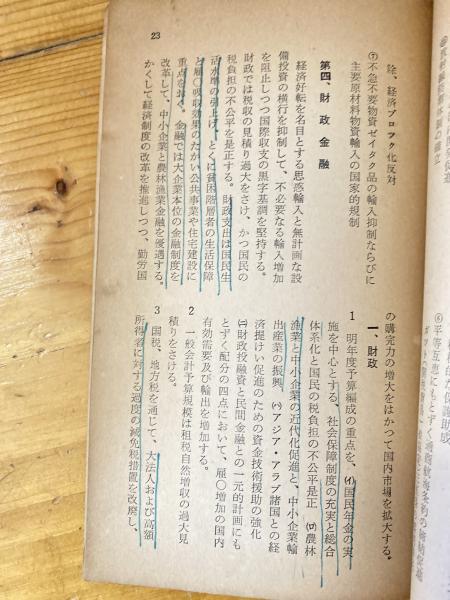 23
除、経済ブロック化反対
⑦不急不要物資ゼイタク品の輸入抑制ならびに
主要原材料物資輸入の国家的規制
第四、財政金融
経済好転を名目とする思惑輸入と無計画な設
備投資の横行を抑制して、不必要なる輸入増加
を阻止しつつ国際収支の黒字基調を堅持する。
財政では税収の見積り過大をさけ、かつ国民の
税負担の不公平を是正する。財政支出は国民生
活水準の引上げ、とくに貧困階層者の生活保障
と雇〇吸収効果のたかい公共事業や住宅建設に
重点をおく、金融では大企業本位の金融制度を
改革して、中小企業と農林漁業金融を優遇する。
かくして経済制度の改革を推進しつつ、勤労国
の購売力の増大をはかつて国内市場を拡大する。
一、財政
1 明年度予算編成の重点を、(イ)国民年金の実
施を中心とする、社会保障制度の充実と総合
体系化と国民の税負担の不公平是正 (ロ)農林
漁業と中小企業の近代化促進と、中小企業輸
出産業の振興、(ハ)アジア・アラブ諸国との経
済提けい促進のための資金技術援助の強化
(ニ)財政投融資と民間金融との一元的計画にも
とずく配分の四点において、雇〇増加の国内
有効需要及び輸出を増加する。
2 一般会計予算規模は租税自然増収の過大見
積りをさける。
3 国税、地方税を通じて、大法人および高額
所得者に対する過度の減免税措置を改廃し、
⑥平等互恵にもとずく通商航海条約の締結促進